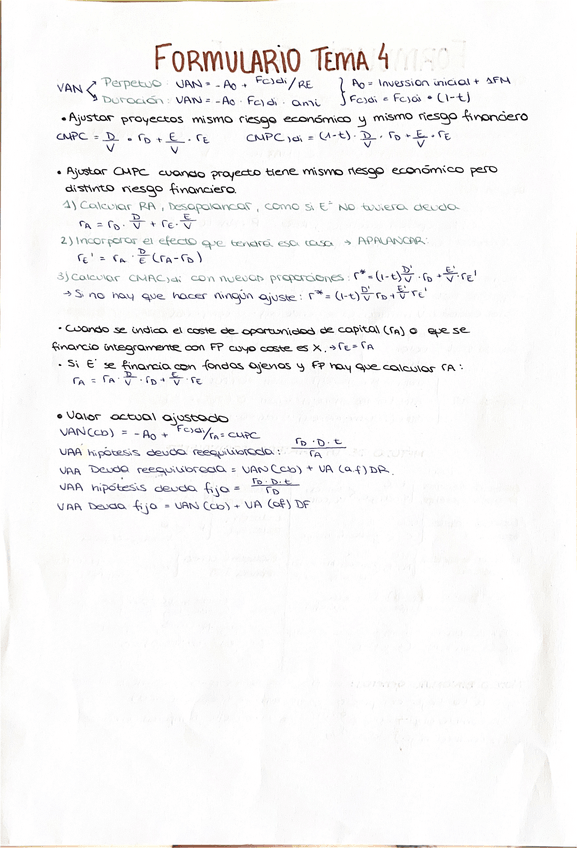 FORMULARIO TEMA 4
VAN Perpetuo: VAN = -A0 + FC)di/RE } A0 = Inversion inicial + ΔFM
Duración: VAN = -A0 · FC)di · ami FC)di = FC)di · (1-t)
• Ajustar proyectos mismo riesgo económico y mismo riesgo financiero
CMPC = D/V · rD + E/V · rE CMPC)di = (1-t) · D/V · rD + E/V · rE
• Ajustar CMPC cuando proyecto tiene mismo riesgo económico pero
distinto riesgo financiero.
1) Calcular RA, Desapalancar, como si E' NO tuviera deuda
rA = rD · D/V + rE · E/V
2) Incorporar el efecto que tendrá esa casa → APALANCAR:
rE' = rA · D/E (rA-rD)
3) Calcular CMAC)di con nuevas proporciones: r* = (1-t) D'/V · rD + E'/V · rE'
→ Si no hay que hacer ningún ajuste: r* = (1-t) D'/V rD + E'/V rE'
• Cuando se indica el coste de oportunidad de capital (rA) o que se
financio íntegramente con FP cuyo coste es X. → rE = rA
• Si E' se financia con fondos ajenos y FP hay que calcular rA:
rA = rA · D/V · rD + E/V · rE
• Valor actual ajustado
VAN(cb) = -A0 + FC)di/rA = CMPC
VAA hipótesis deuda reequilibrada: rD · D · t / rA
VAA Deuda reequilibrada = VAN(cb) + VA (a.f) DR.
VAA hipótesis deuda fijo = rD · D · t / rD
VAA Deuda fijo = VAN(cb) + VA (af) DF